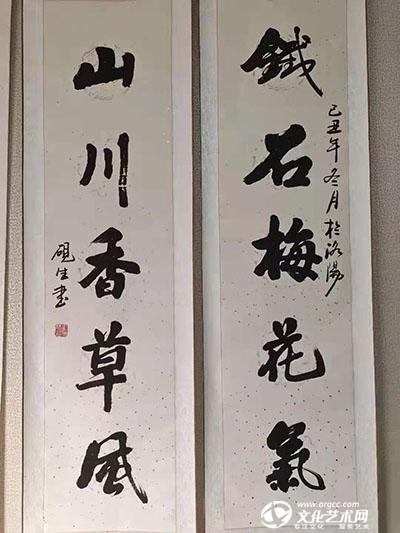 鐵石梅花氣
己丑年冬月於洛陽
山川香草風
硯生書
www.orgcc.com
文化艺术网
专注文化 服务艺术